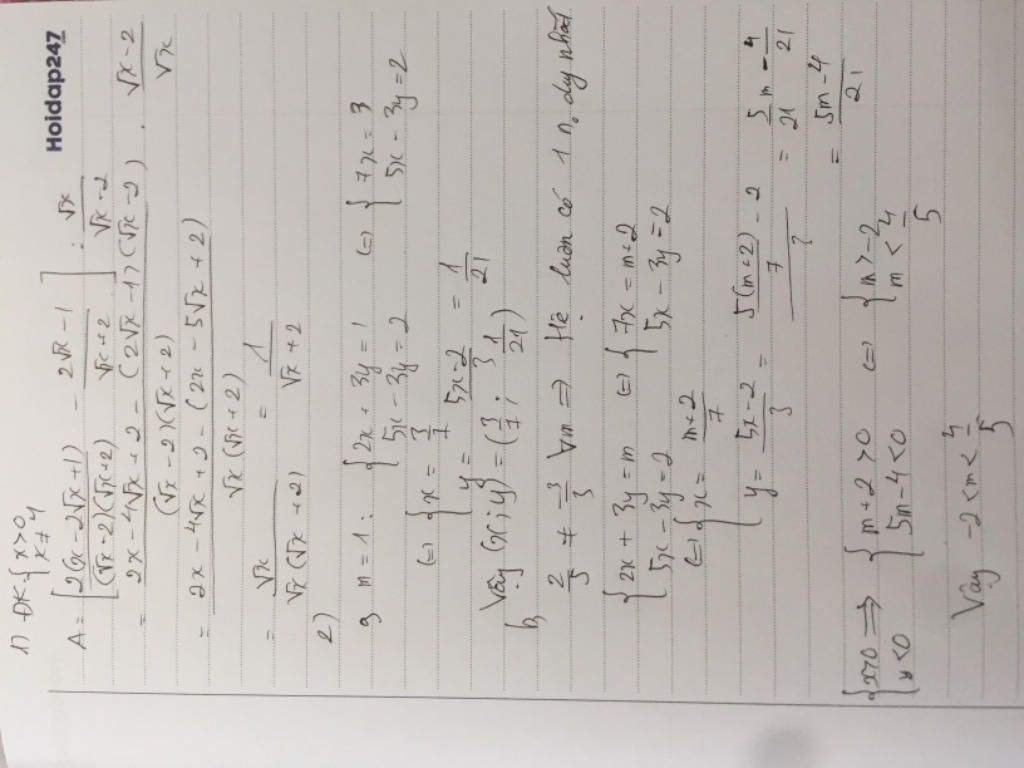 Hoidap247
1) ĐK: { x>0, x≠4
A = [ 2(x-2√x+1) / (√x-2)(√x+2) - 2√x-1 / √x+2 ] : √x / √x-2
= 2x-4√x+2-(2√x-1)(√x-2) / (√x-2)(√x+2) . √x-2 / √x
= 2x-4√x+2-(2x-5√x+2) / √x(√x+2)
= √x / √x(√x+2) = 1 / √x+2
2)
a, m=1: { 2x+3y=1 (=) { 7x=3
5x-3y=2 5x-3y=2
(=) { x = 3/7
y = 5x-2 / 3 = 1/21
Vậy (x;y) = (3/7; 1/21)
b, 2/5 ≠ 3/-3 ∀m => Hệ luôn có 1 n0 duy nhất
{ 2x+3y=m (=) { 7x=m+2
5x-3y=2 5x-3y=2
(=) { x = m+2 / 7
y = 5x-2 / 3 = 5(m+2)/7 - 2 / 3 = 5m-4 / 21
= 5m-4 / 21
{ x>0 => { m+2>0 (=) { m>-2
y<0 5m-4<0 m<4/5
Vậy -2<m<4/5